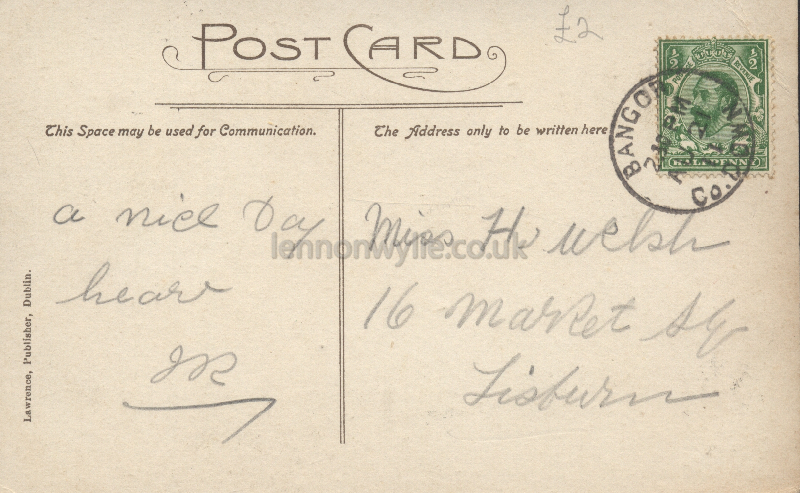 £2
POST CARD
This Space may be used for Communication.
The Address only to be written here
½ ½
HALFPENNY
BANGOR Co. DOWN
a nice Day
hear
JR
Miss H. Welsh
16 Market Sq
Lisburn
Lawrence, Publisher, Dublin.
lennonwylie.co.uk